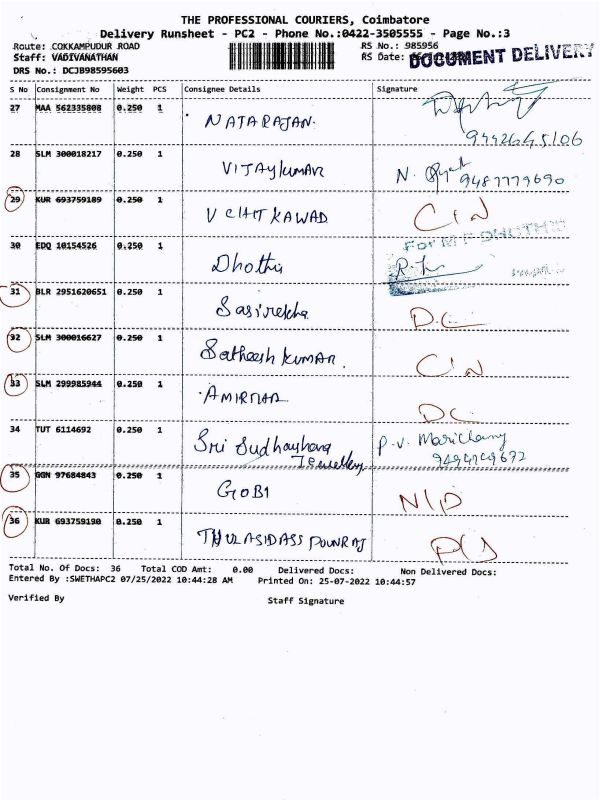 THE PROFESSIONAL COURIERS, Coimbatore
Delivery Runsheet - PC2 - Phone No.:0422-3505555 - Page No.:3
Route: COKKAMPUDUR ROAD RS No.: 985956
Staff: VADIVANATHAN RS Date: DOCUMENT DELIVERY
DRS No.: DCJB98595603
S No Consignment No Weight PCS Consignee Details Signature
27 MAA 562335808 0.250 1 NATARAJAN
9442645106
28 SLM 300018217 0.250 1 VIJAYKUMAR N.
9487779690
29 KUR 693759189 0.250 1 V CHIT KAWAD C/N
30 EDQ 10154526 0.250 1 Dhothi For M F DHOTHI
31 BLR 2951620651 0.250 1 Sasirekha D.C
32 SLM 300016627 0.250 1 Satheesh kumar C/N
33 SLM 299985944 0.250 1 AMIRTHAR DC
34 TUT 6114692 0.250 1 Sri Sudharshana P.V. Marichamy
Jewellery
35 GGN 97684843 0.250 1 GOBI N/P
36 KUR 693759190 0.250 1 THULASIDASS POUNRAJ
Total No. Of Docs: 36 Total COD Amt: 0.00 Delivered Docs: Non Delivered Docs:
Entered By :SWETHAPC2 07/25/2022 10:44:28 AM Printed On: 25-07-2022 10:44:57
Verified By Staff Signature